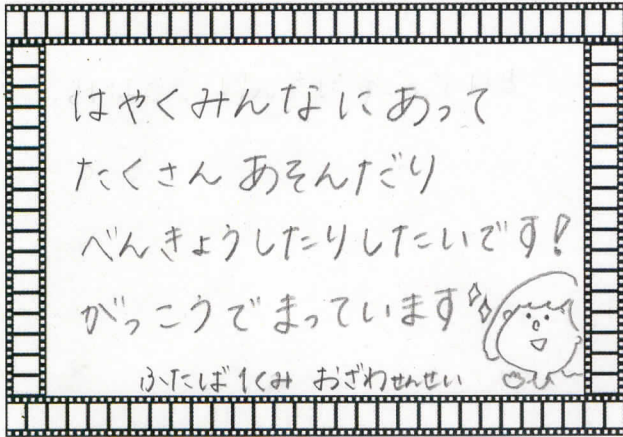 はやくみんなにあって
たくさんあそんだり
べんきょうしたりしたいです!
がっこうでまっています
ふたば1くみ おざわせんせい